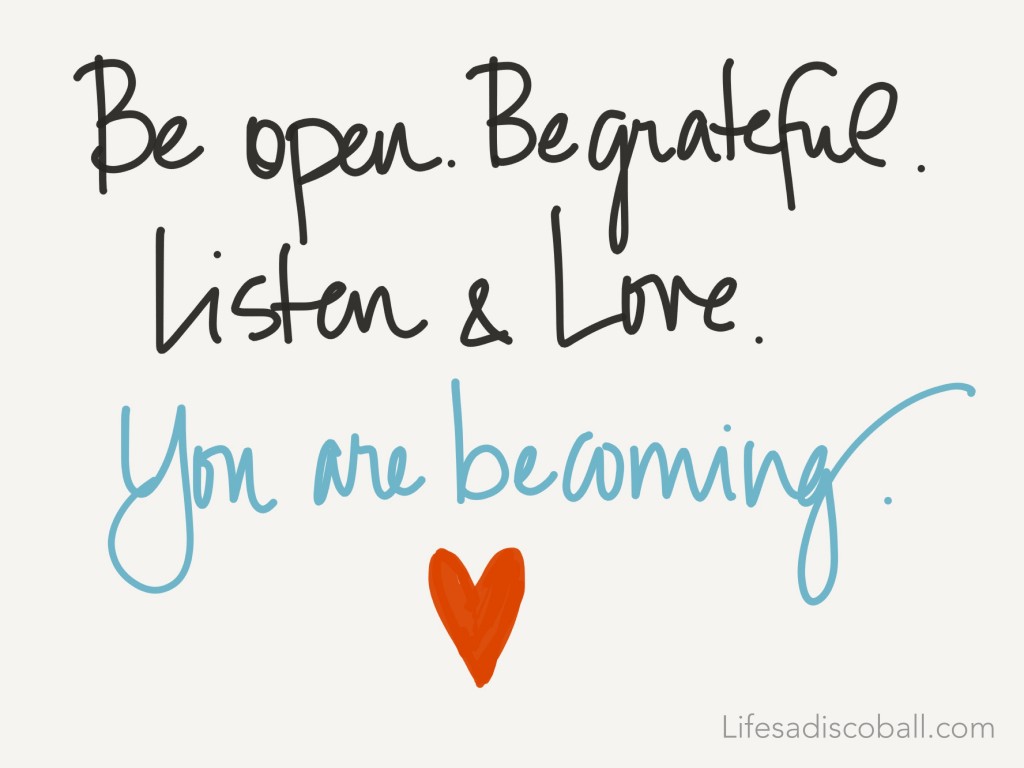 Be open. Be grateful.
Listen & Love.
You are becoming.
Lifesadiscoball.com